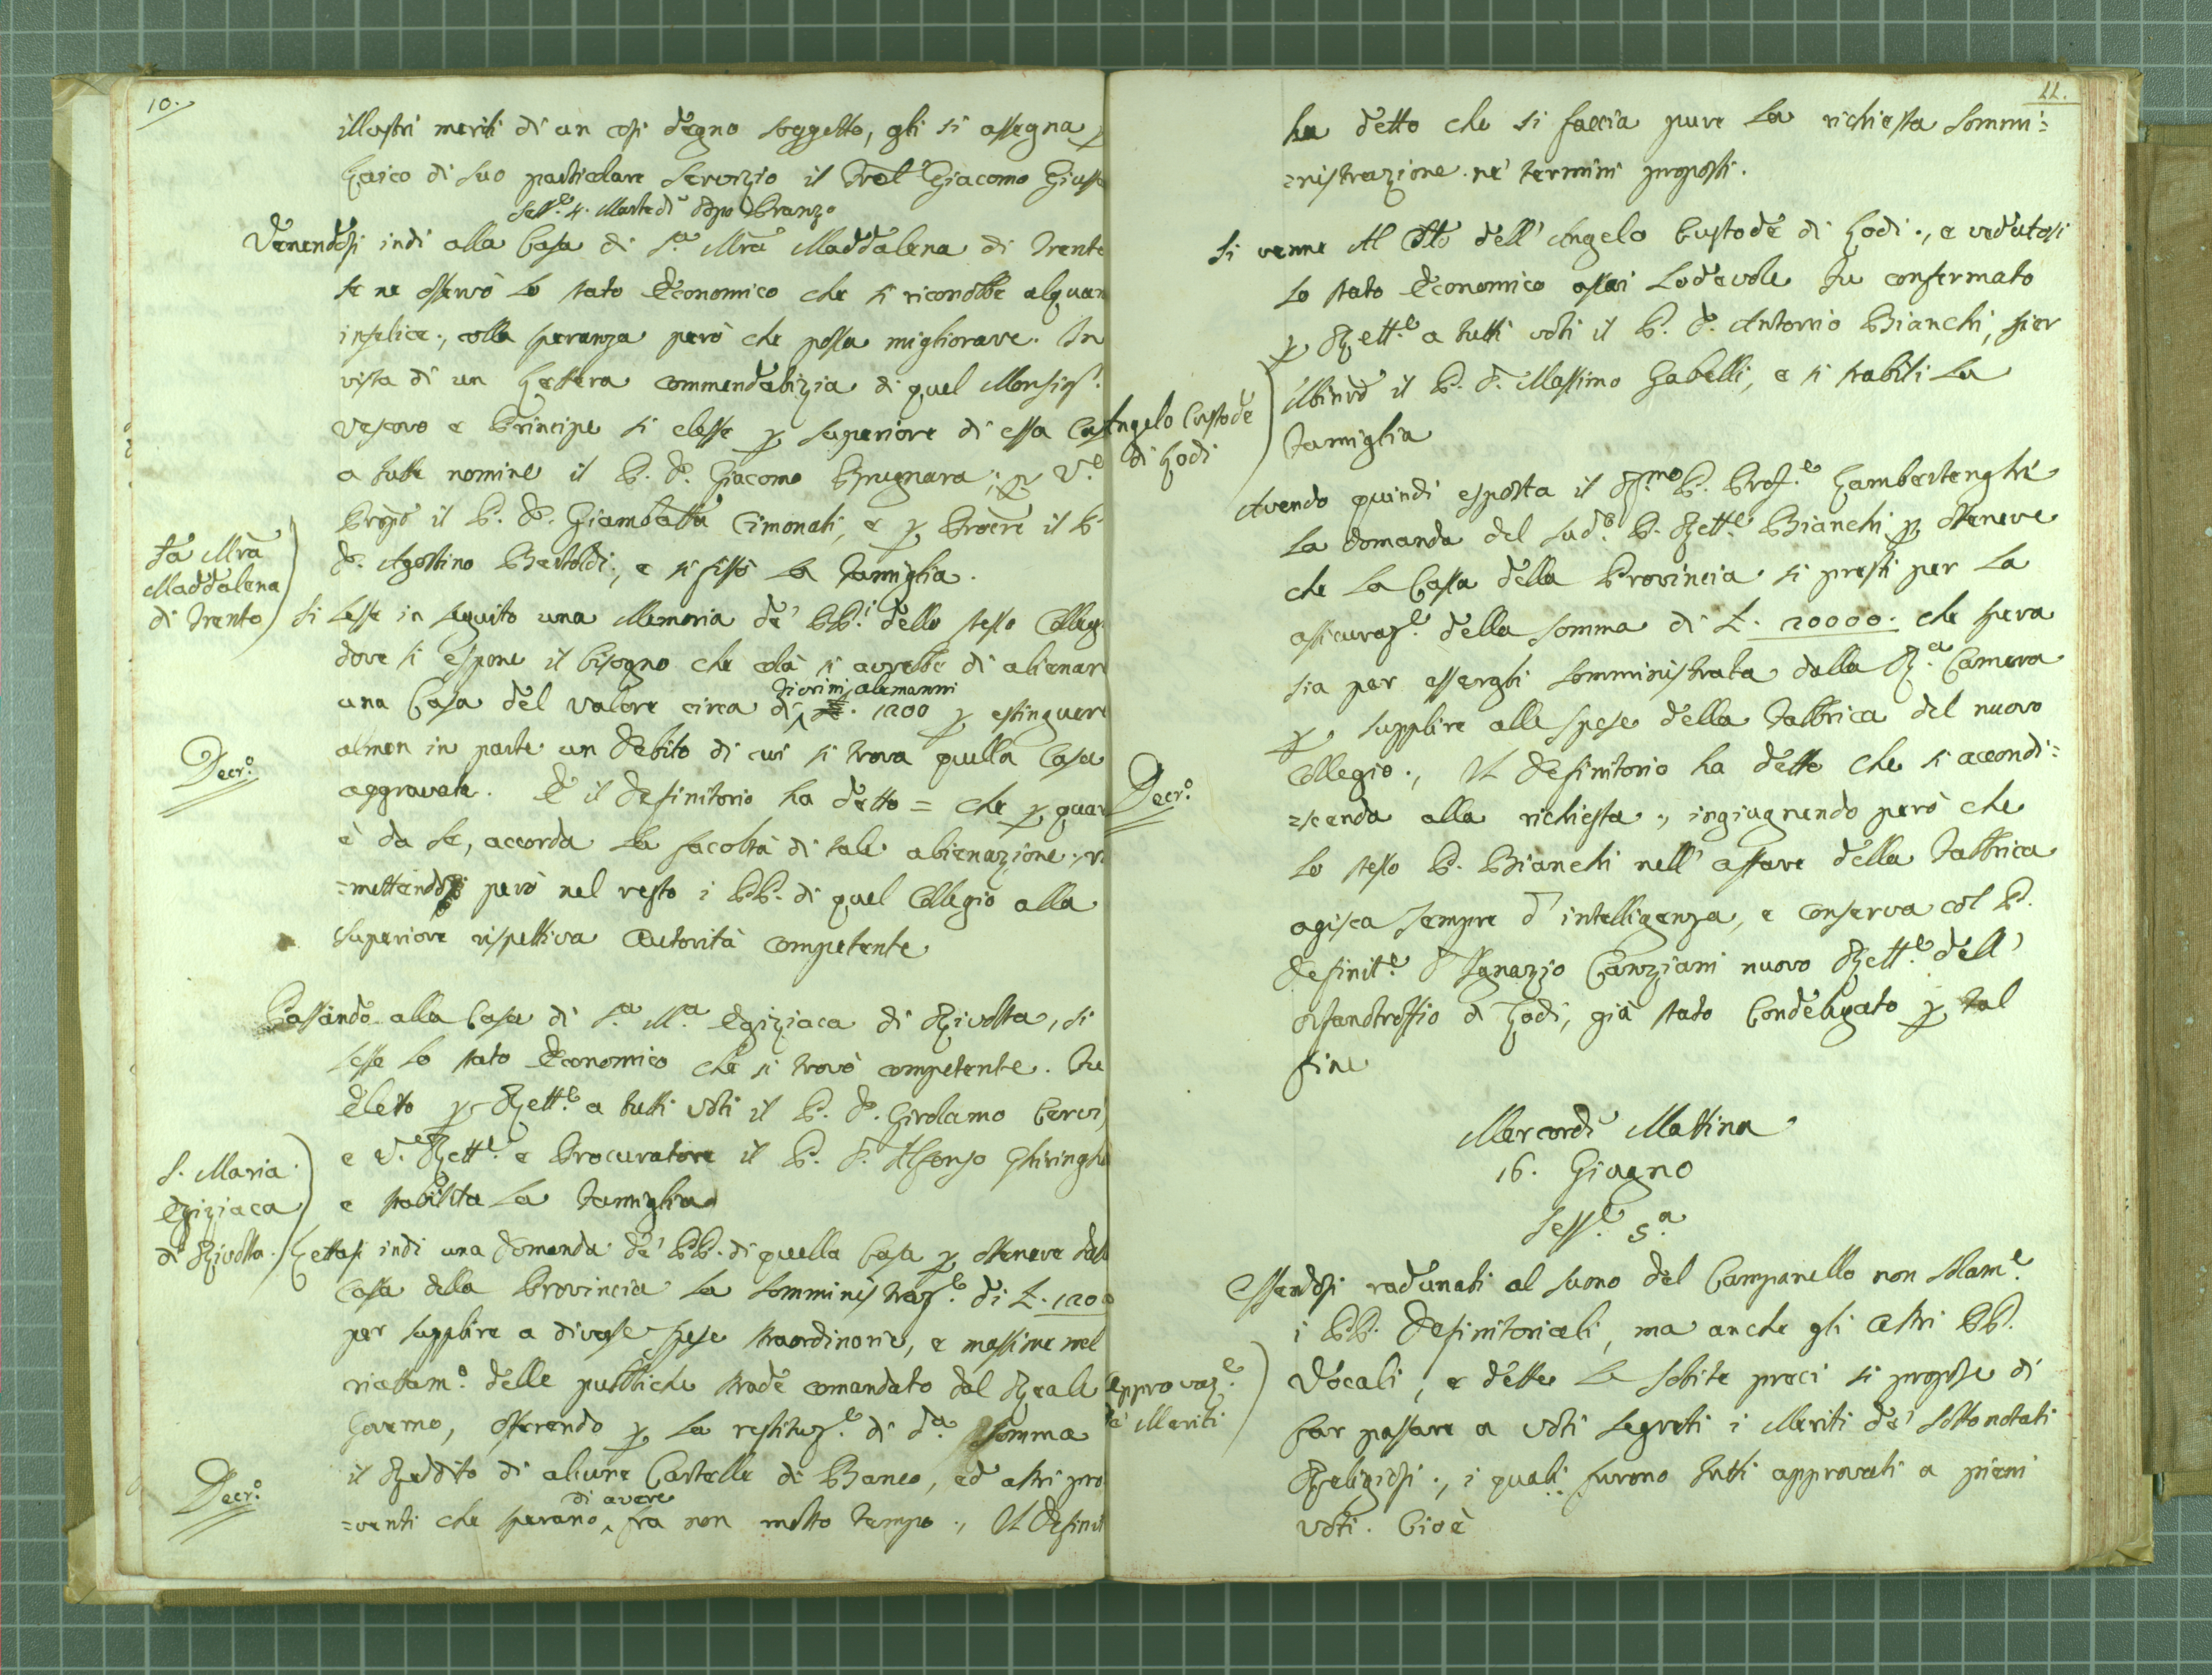 10.
illustri meriti di un così degno soggetto, gli si assegna p
Laico di suo particolare servizio il Fratel Giacomo
Sess.e 4. Martedì dopo Pranzo
Venendosi indi alla Casa di S.a Mra Maddalena di Trento
se ne osservò lo stato Economico che si riconobbe alquan
infelice, colla speranza però che possa migliorare. In
vista di un Lettera commendatizia di quel Monsig.r
Vescovo e Principe si elesse p Superiore di essa Cas
a tutte nomine il P. D. Giacomo Brugnara; p V.e
Prepo il P. D. Giambatta Cimonati, e p Procre il P.
D. Agostino Bertoldi, e si fissò la Famiglia.
Sa Mra
Maddalena
di Trento
Si lesse in seguito una Memoria de' PP.i dello stesso Colleg.
dove si espone il bisogno che colà si avrebbe di alienare
una Casa del valore circa di Fiorini alemanni 1200 p estinguere
almen in parte un debito di cui si trova quella Casa
Decr.o
aggravata. E il Definitorio ha detto = che p quan
è da se, accorda la facoltà di tale alienazione, ri
=mettendosi però nel resto i PP. di quel Collegio alla
superiore rispettiva Autorità competente
Passando alla Casa di S.a M.a Egiziaca di Rivolta, si
lesse lo stato Economico che si trovò competente. Fu
Eletto p Rett.e a tutti voti il P. D. Girolamo Cervi,
e V.e Rett.e e Procuratore il P. D. Alfonso Ghiringhe
e stabilita la Famiglia
S. Maria
Egiziaca
di Rivolta.
Lettasi indi una domanda de' PP. di quella Casa p ottenere dall
Cassa della Provincia la somministraz.e di L. 1200
per supplire a diverse spese straordinarie, e massime nel
riattam.o delle pubbliche strade comandato dal Reale
Governo, offerendo p la restituz.e di d.a somma
il Reddito di alcune Cartelle di Banco, ed altri pro
Decr.o
=venti che sperano di avere fra non molto tempo, Il Definit
11.
ha detto che si faccia pure la richiesta sommi=
=nistrazione ne' termini proposti.
Si venne Al Otto dell' Angelo Custode di Lodi, e vedutosi
lo stato Economico assai lodevole fu confermato
p Rett.e a tutti voti il P. D. Antonio Bianchi,
il P. D. Massimo Gabelli, e si stabilì la
Famiglia
Angelo Custode
di Lodi
Avendo quindi esposta il R.mo P. Prov.e Lambertenghi
la domanda del sud.o P. Rett.e Bianchi p ottenere
che la Cassa della Provincia si presti per la
assicuraz.e della somma di L. 20000. che spera
sia per essergli somministrata dalla R.a Camera
p supplire alle spese della Fabbrica del nuovo
Decr.o
Collegio, Il Definitorio ha detto che si accondi=
=scenda alla richiesta, ingiugnendo però che
lo stesso P. Bianchi nell' affare della Fabbrica
agisca sempre d' intelligenza, e conserva col P.
Definit.e D. Ignazio Canziani nuovo Rett.e dell'
Orfanotroffio di Lodi, già stato Condelegato p tal
fine
Mercordì Mattina
16. Giugno
Sess.e 5.a
Essendosi radunati al suono del Campanello non solam.e
i PP. Definitoriali, ma anche gli altri PP.
Vocali, e dette le solite preci si propose di
Approvaz.e
de' Meriti
far passare a voti segreti i Meriti de' sottonotati
Religiosi, i quali furono tutti approvati a pieni
voti. Cioè